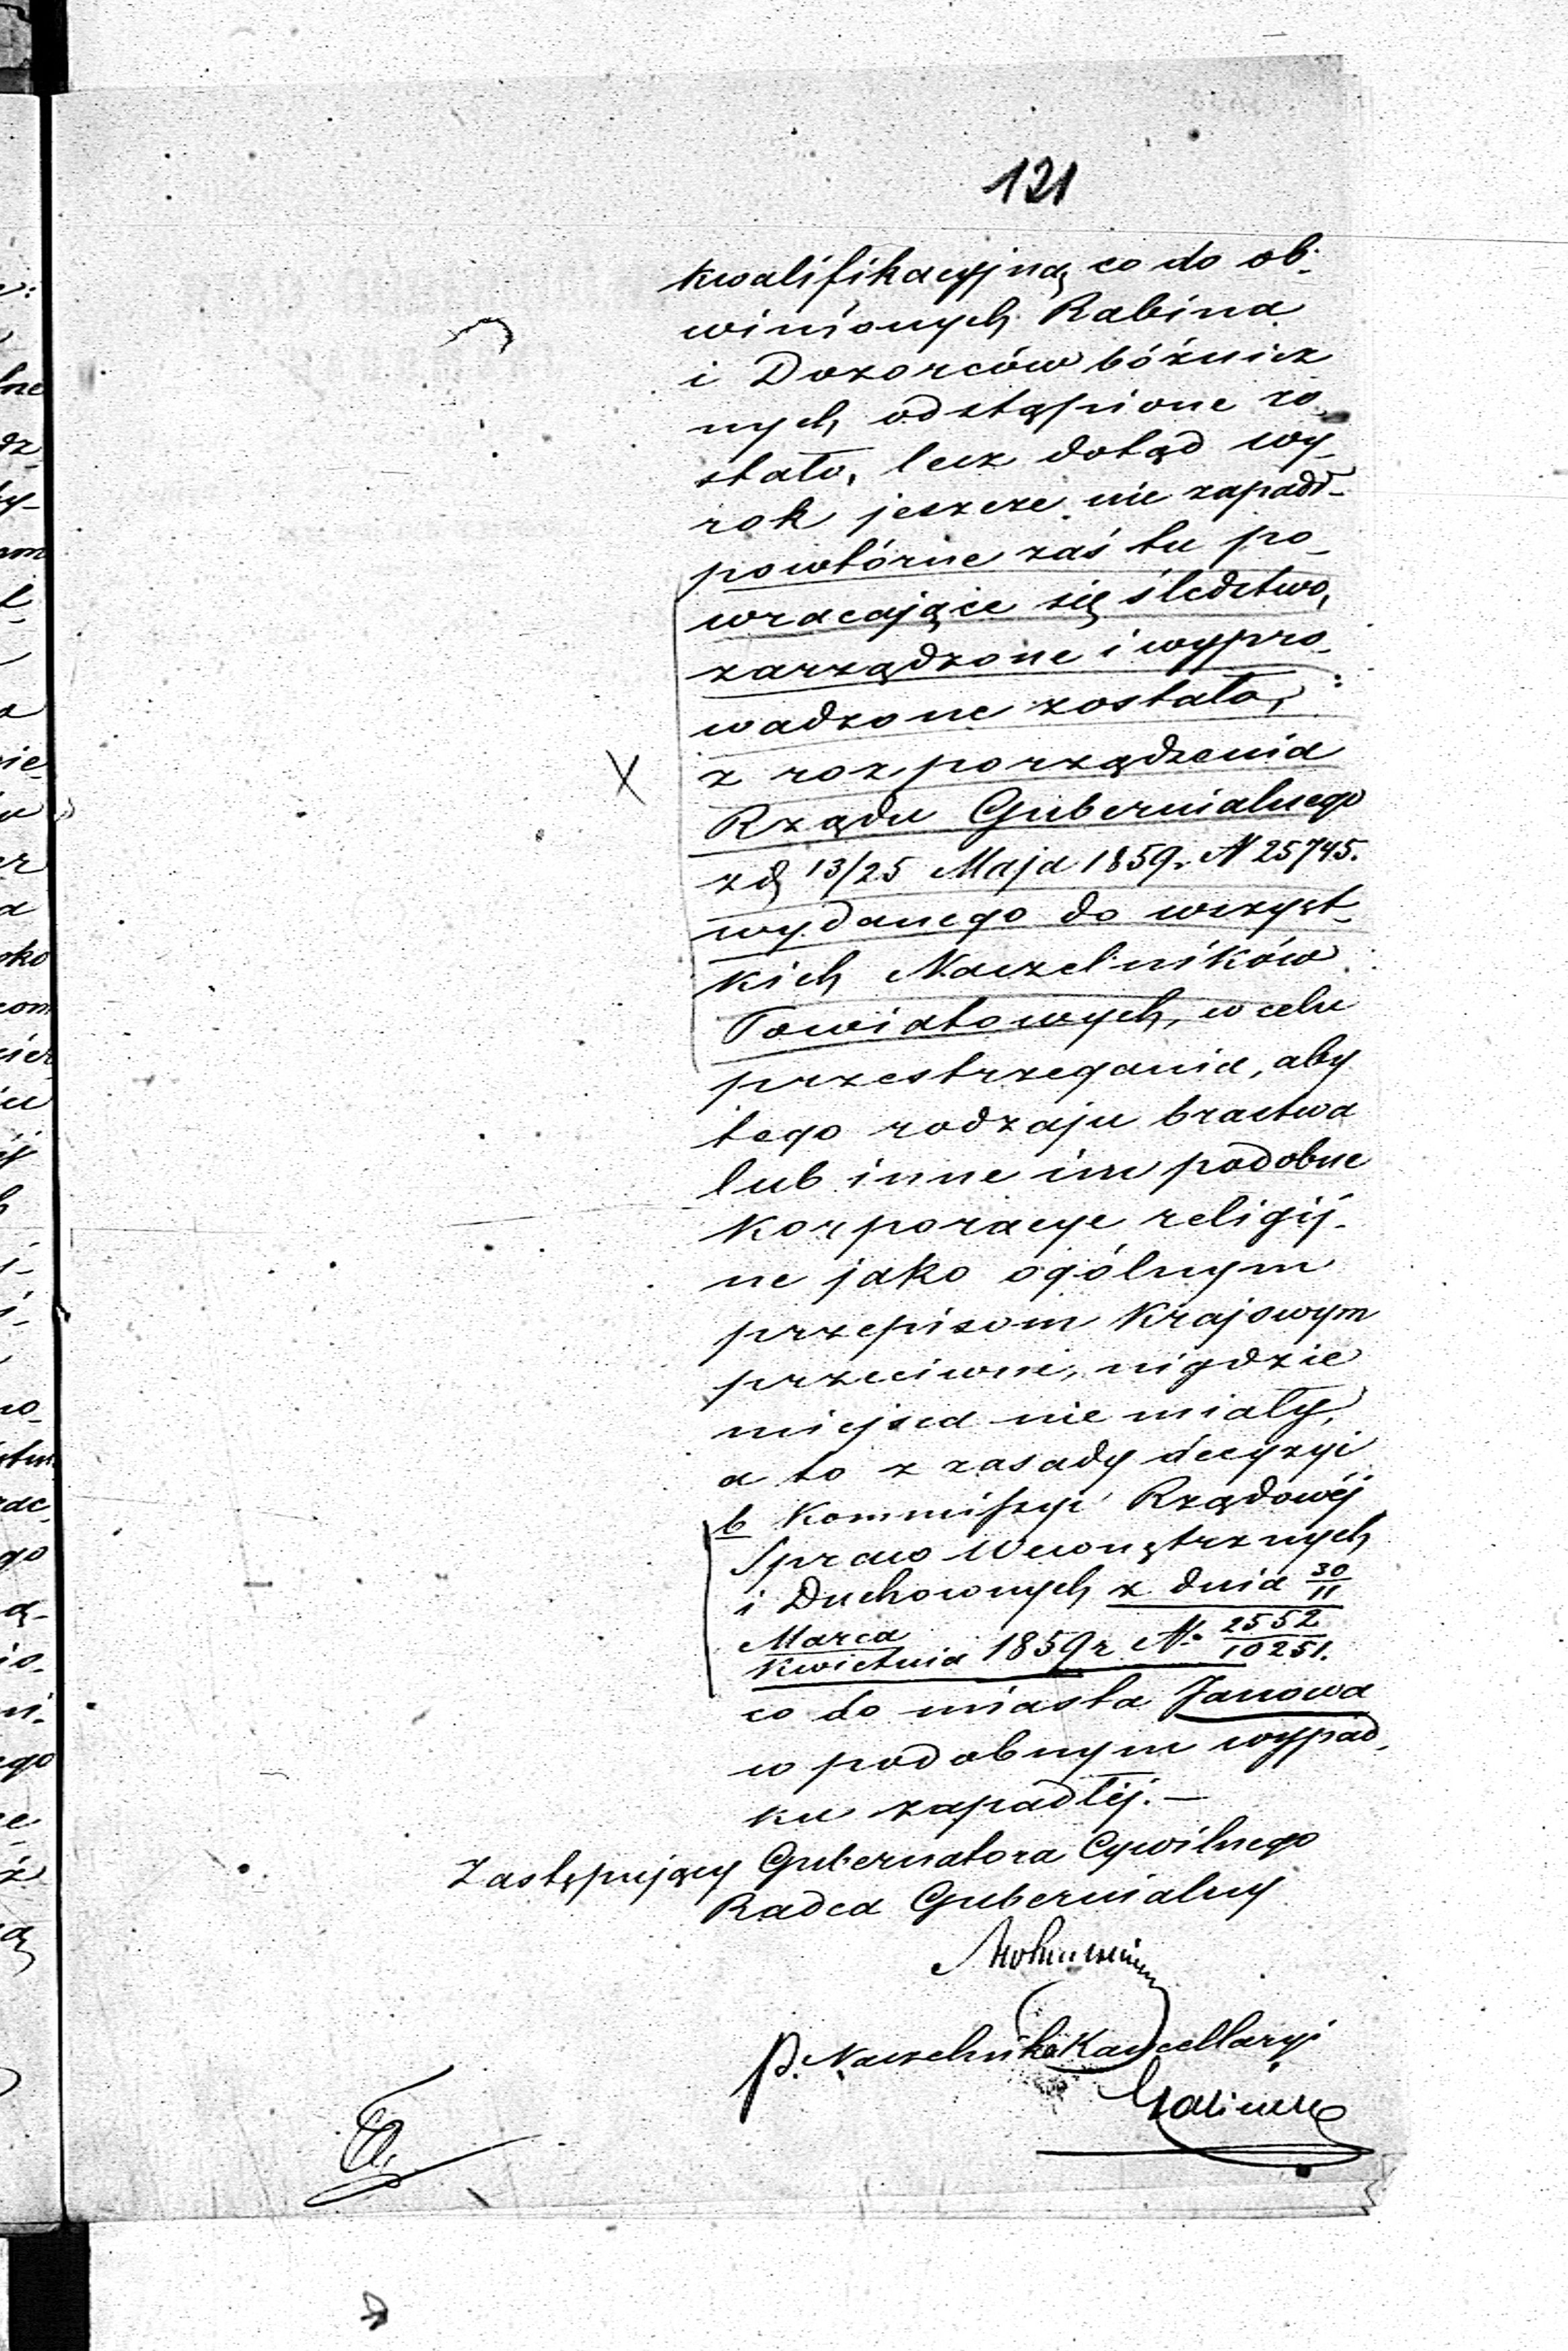 121
kwalifikacyjną co do ob-
winionych Rabina
i Dozorców bóżnicz
nych, odstąpione zo_
stało, lecz dotąd wy_
rok jeszcze nie zapadł_
powtórne zaś tu po_
wracające się śledztwo,
zarządzone i wypro_
wadzone zostało,
X z rozporządzenia
Rządu Gubernialnego
z d 13/25 Maja 1859. N 25745.
wydanego do wszyst_
kich Naczelników
Powiatowych, w celu
przestrzegania, aby
tego rodzaju bractwa
lub inne im podobne
korporacye religij-
ne jako ogólnym
przepisom Krajowym
przeciwne, nigdzie
miejsca nie miały,
a to z zasady decyzyi
b Kommissyi Rządowéj
Spraw Wewnętrznych
i Duchownych z dnia 30/11
Marca/Kwietnia 1859 r. N. 2552/10251.
co do miasta Janowa
w podobnym wypad_
ku zapadłéj. —
Zastępujący Gubernatora Cywilnego
Radca Gubernialny
p. Naczelnika Kancellaryi